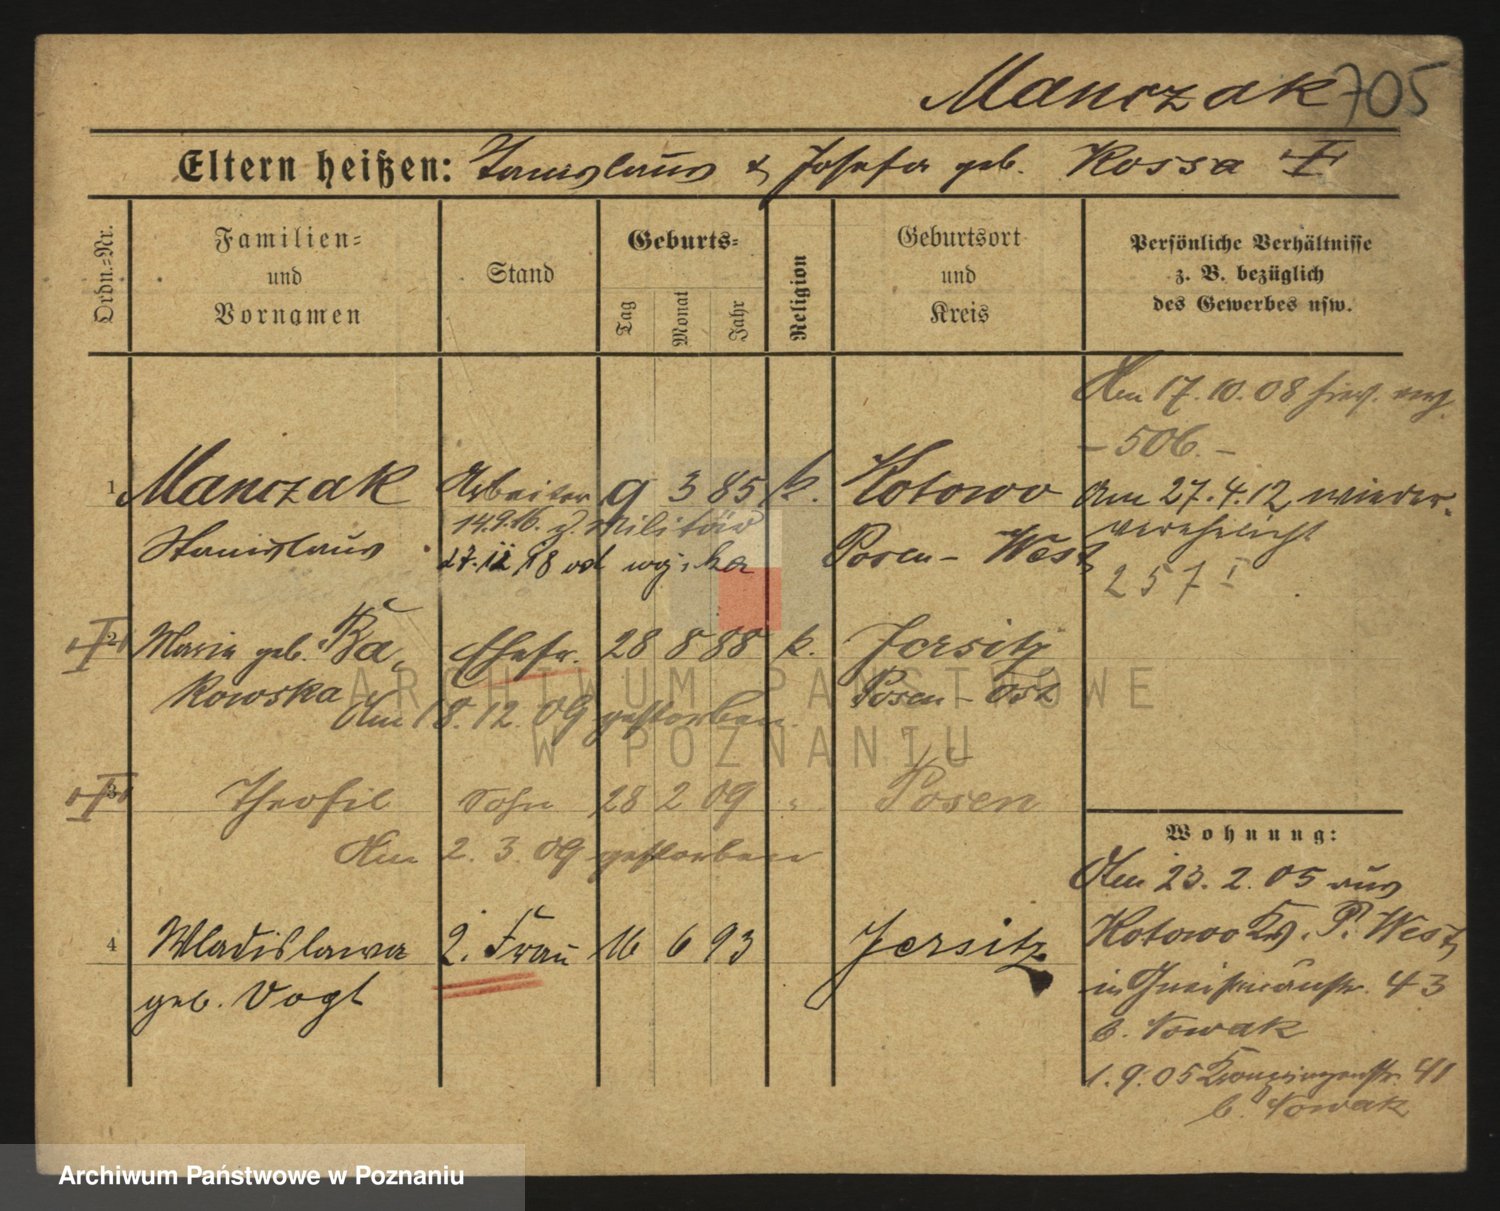 Manczak 705
Eltern heißen: Stanislaus & Josefa geb. Rossa
Ordn.-Nr.
Familien-
und
Vornamen
Stand
Geburts-
Tag
Monat
Jahr
Religion
Geburtsort
und
Kreis
Persönliche Verhältnisse
z. B. bezüglich
des Gewerbes usw.
Am 17.10.08
- 506. -
1 Manczak Arbeiter 9 3 85 k. Kotowo Am 27.4.12 wieder-
14.9.16. z. Militär
Stanislaus Posen-West verehelicht
27.12.18
257 I
2 Maria geb. Ra- Ehefr. 28 8 88 k. Jersitz
kowska Posen-Ost
Am 18.12.09 gestorben.
3 Theofil Sohn 28 2 09 " Posen
Am 2.3.09 gestorben
Wohnung:
Am 23.2.05 aus
4 Wladislawa 2. Frau 16 6 93 Jersitz Kotowo Kr. P. West
geb. Vogt in Gneisenaustr. 43
b. Nowak
1.9.05 41
b. Nowak
ARCHIWUM PAŃSTWOWE
W POZNANIU
Archiwum Państwowe w Poznaniu